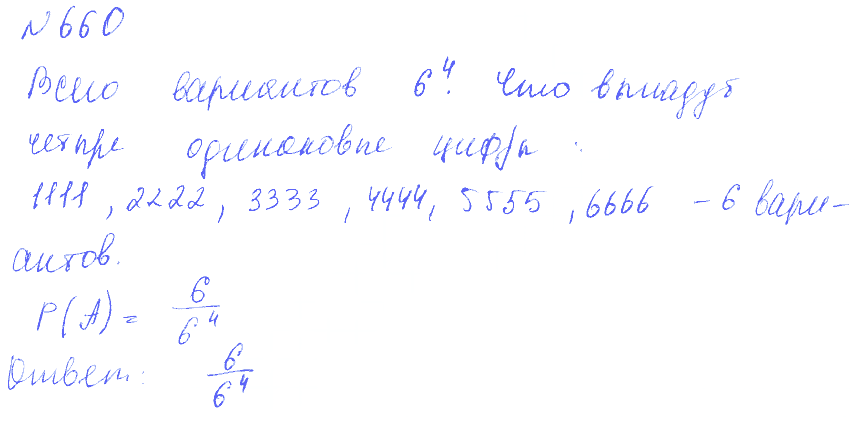 №660
Всего вариантов 6⁴. Что выпадут
четыре одинаковые цифры :
1111, 2222, 3333, 4444, 5555, 6666 - 6 вари-
антов.
P(A) = 6/6⁴
Ответ: 6/6⁴